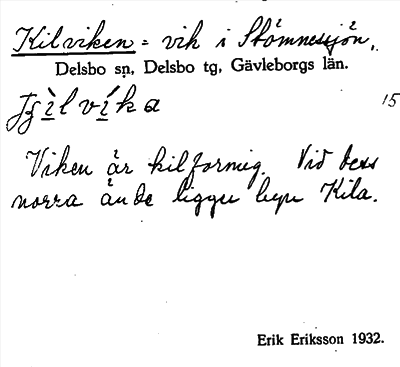 Kilviken = vik i Stömnessjön,
Delsbo sn, Delsbo tg, Gävleborgs län.
15
Viken är kilformig. Vid dess
norra ände ligger byn Kila.
Erik Eriksson 1932.